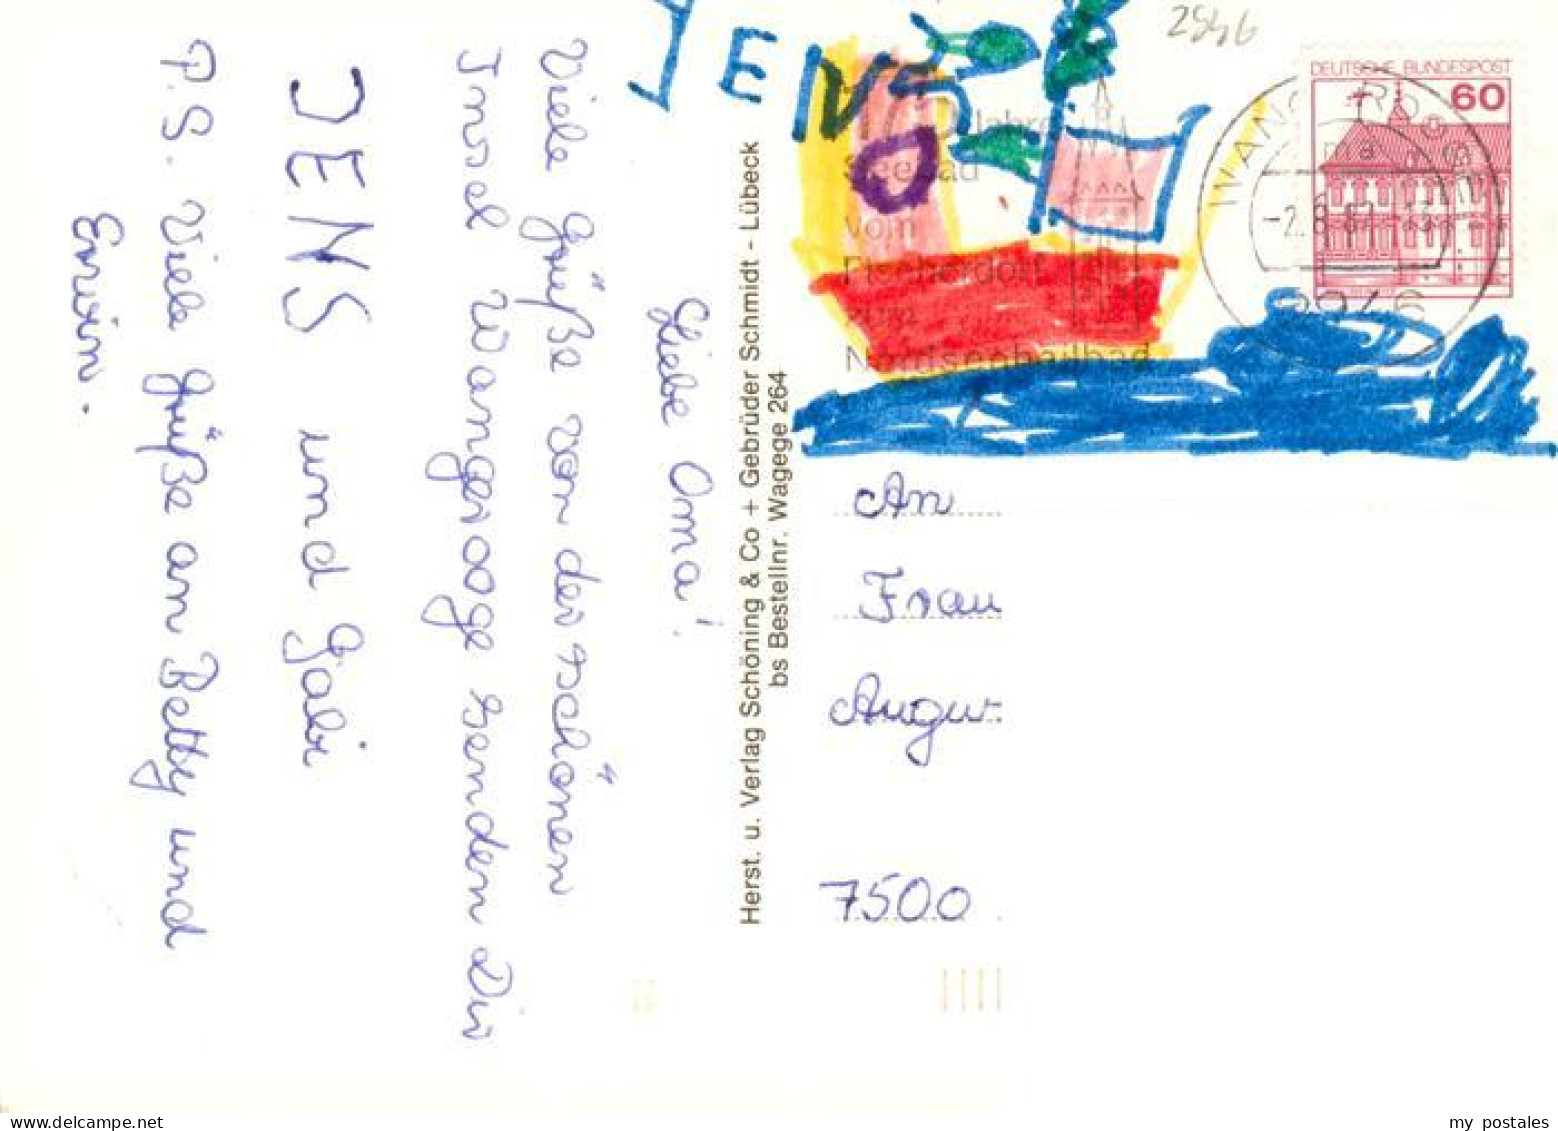 Liebe Oma!
Viele Grüße von der schönen
Insel Wangerooge senden Dir
JENS und Gabi
P.S. Viele Grüße an Betty und
Erwin.
Herst. u. Verlag Schöning & Co + Gebrüder Schmidt - Lübeck
bs Bestellnr. Wagege 264
JENS
2946
DEUTSCHE BUNDESPOST
60
2946
Jahre
Seebad
vom
Fischerdorf
zum
Nordseeheilbad
An
Frau
Augu
7500
my postales